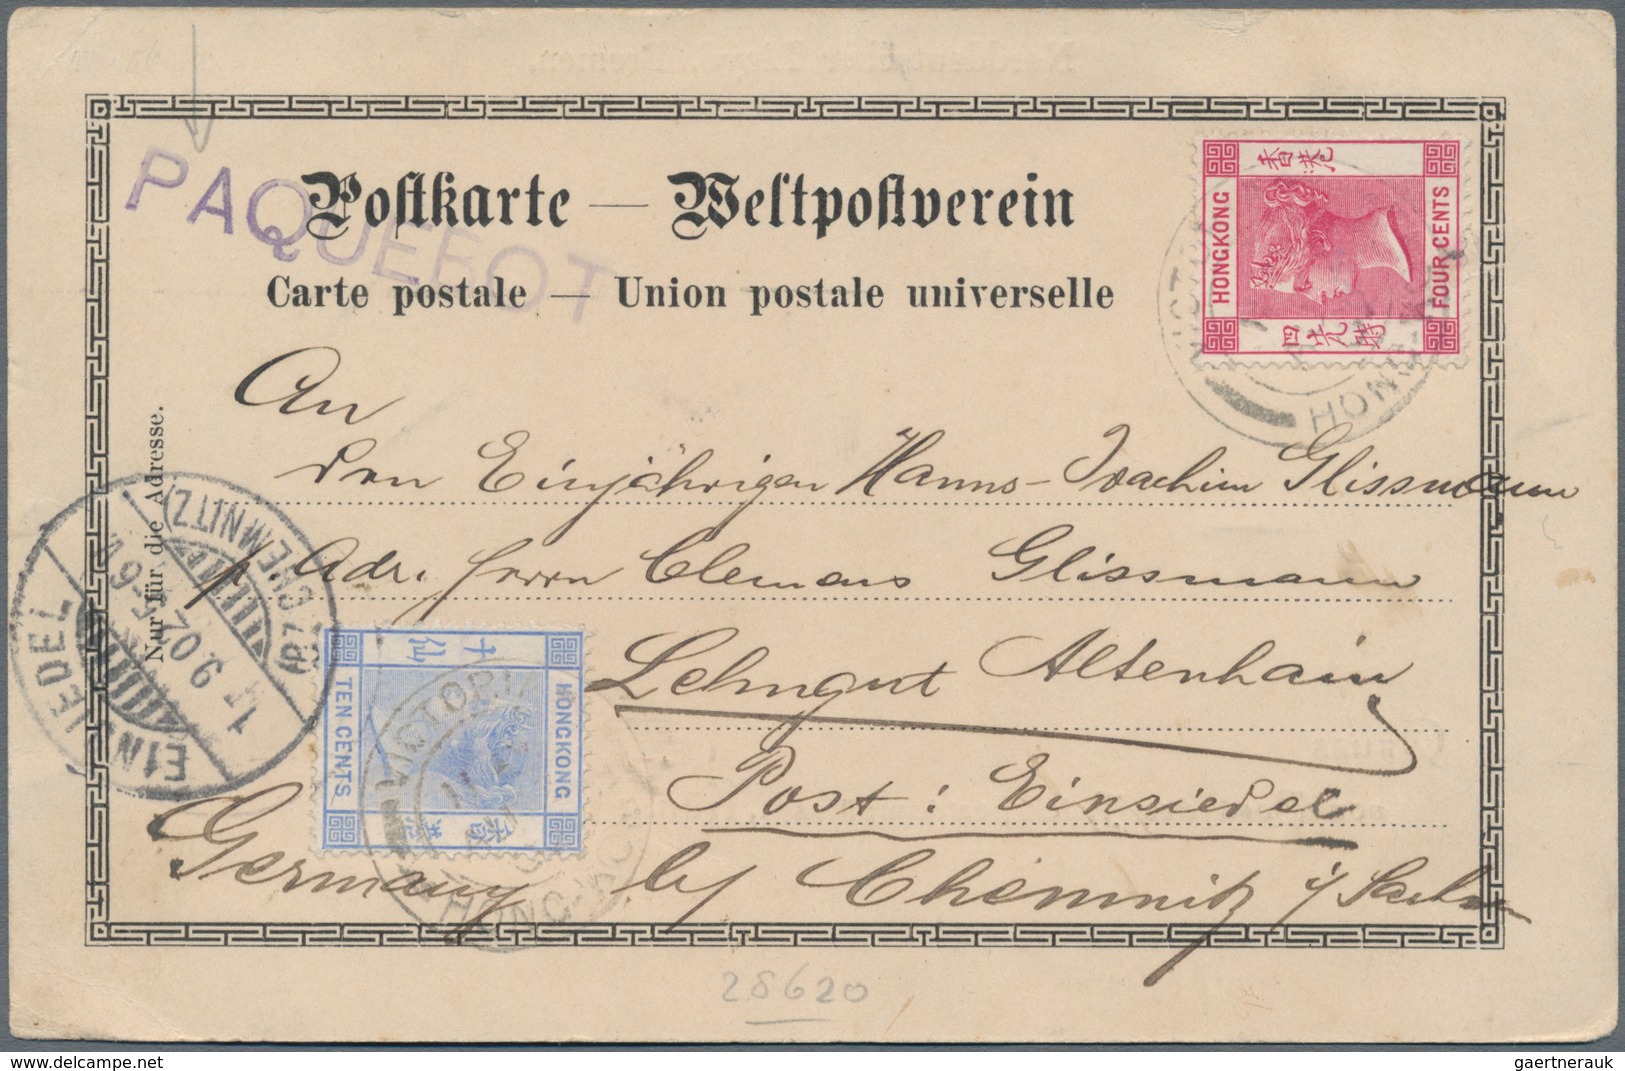 PAQUEBOT
Postkarte — Weltpostverein
Carte postale — Union postale universelle
香港
HONGKONG
FOUR CENTS
VICTORIA
HONG-KONG
An
den Einjährigen Hanns-Joachim Glissmann
p. Adr. Herrn Clemens Glissmann
Lehngut Altenhain
Post: Einsiedel
Germany by Chemnitz i/ Sachsen
Nur für die Adresse.
EINSIEDEL
(BZ. CHEMNITZ)
1. 9. 02. 5-6 N
TEN CENTS
HONGKONG
香港
VICTORIA
HONG-KONG
28620
delcampe.net
gaertnerauk